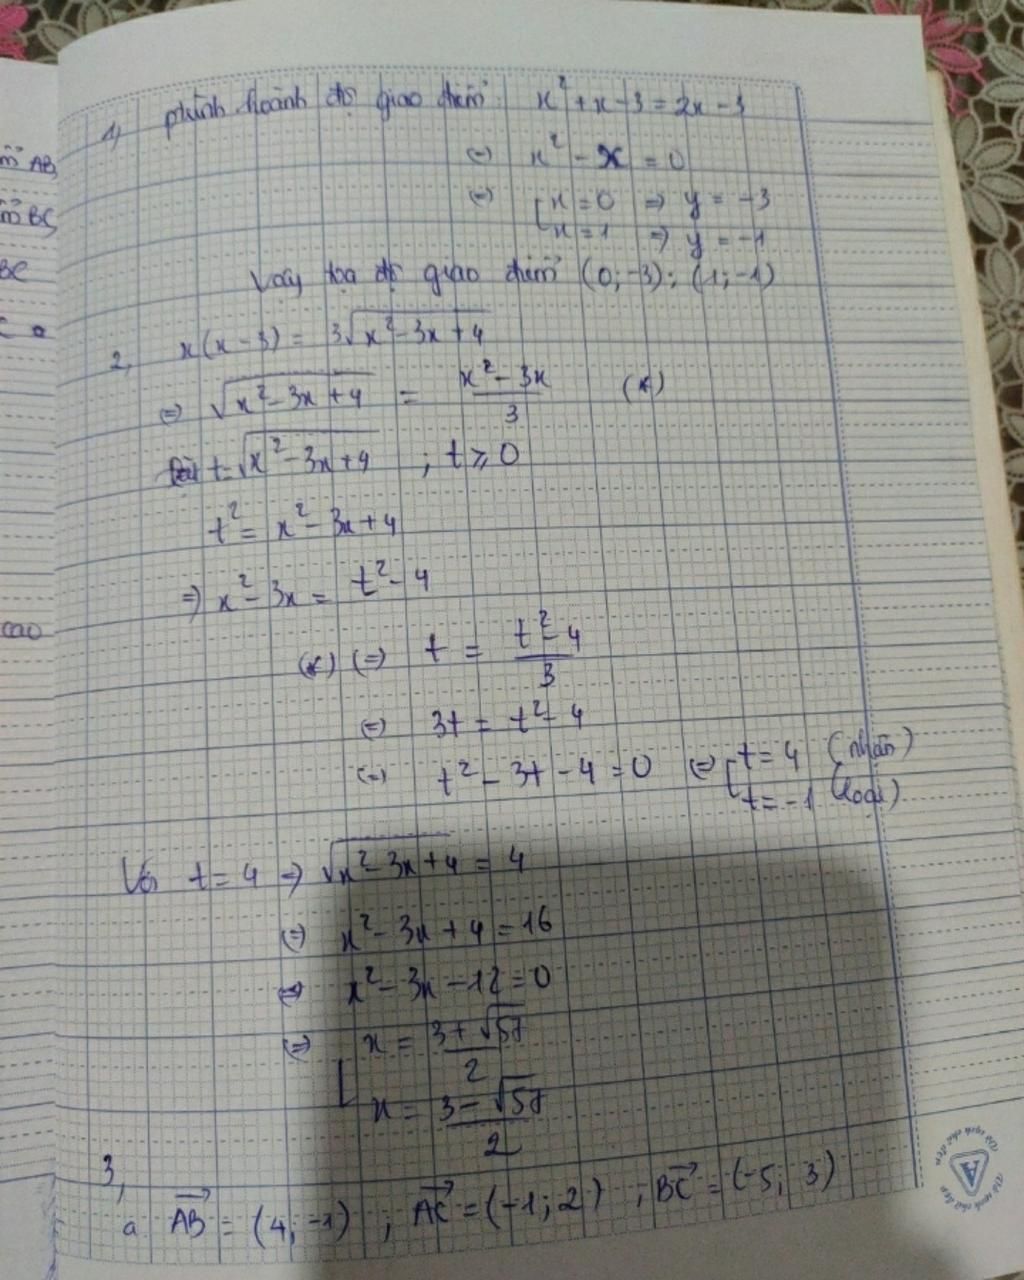 m AB
m BC
BC
C a
cao
1, ptrình hoành độ giao điểm: x² + x - 3 = 2x - 3
(=) x² - x = 0
(=) [x = 0 => y = -3
x = 1 => y = -1
Vậy tọa độ giao điểm (0; -3); (1; -1)
2, x(x - 3) = 3√(x² - 3x + 4)
(=) √(x² - 3x + 4) = (x² - 3x)/3 (*)
Đặt t = √(x² - 3x + 4) ; t ⩾ 0
t² = x² - 3x + 4
=> x² - 3x = t² - 4
(*) (=) t = (t² - 4)/3
(=) 3t = t² - 4
(=) t² - 3t - 4 = 0 (=) [t = 4 (nhận)
t = -1 (loại)
Với t = 4 => √(x² - 3x + 4) = 4
(=) x² - 3x + 4 = 16
(=) x² - 3x - 12 = 0
(=) [x = (3 + √57)/2
x = (3 - √57)/2
3,
a. AB→ = (4; -1) ; AC→ = (-1; 2) ; BC→ = (-5; 3)